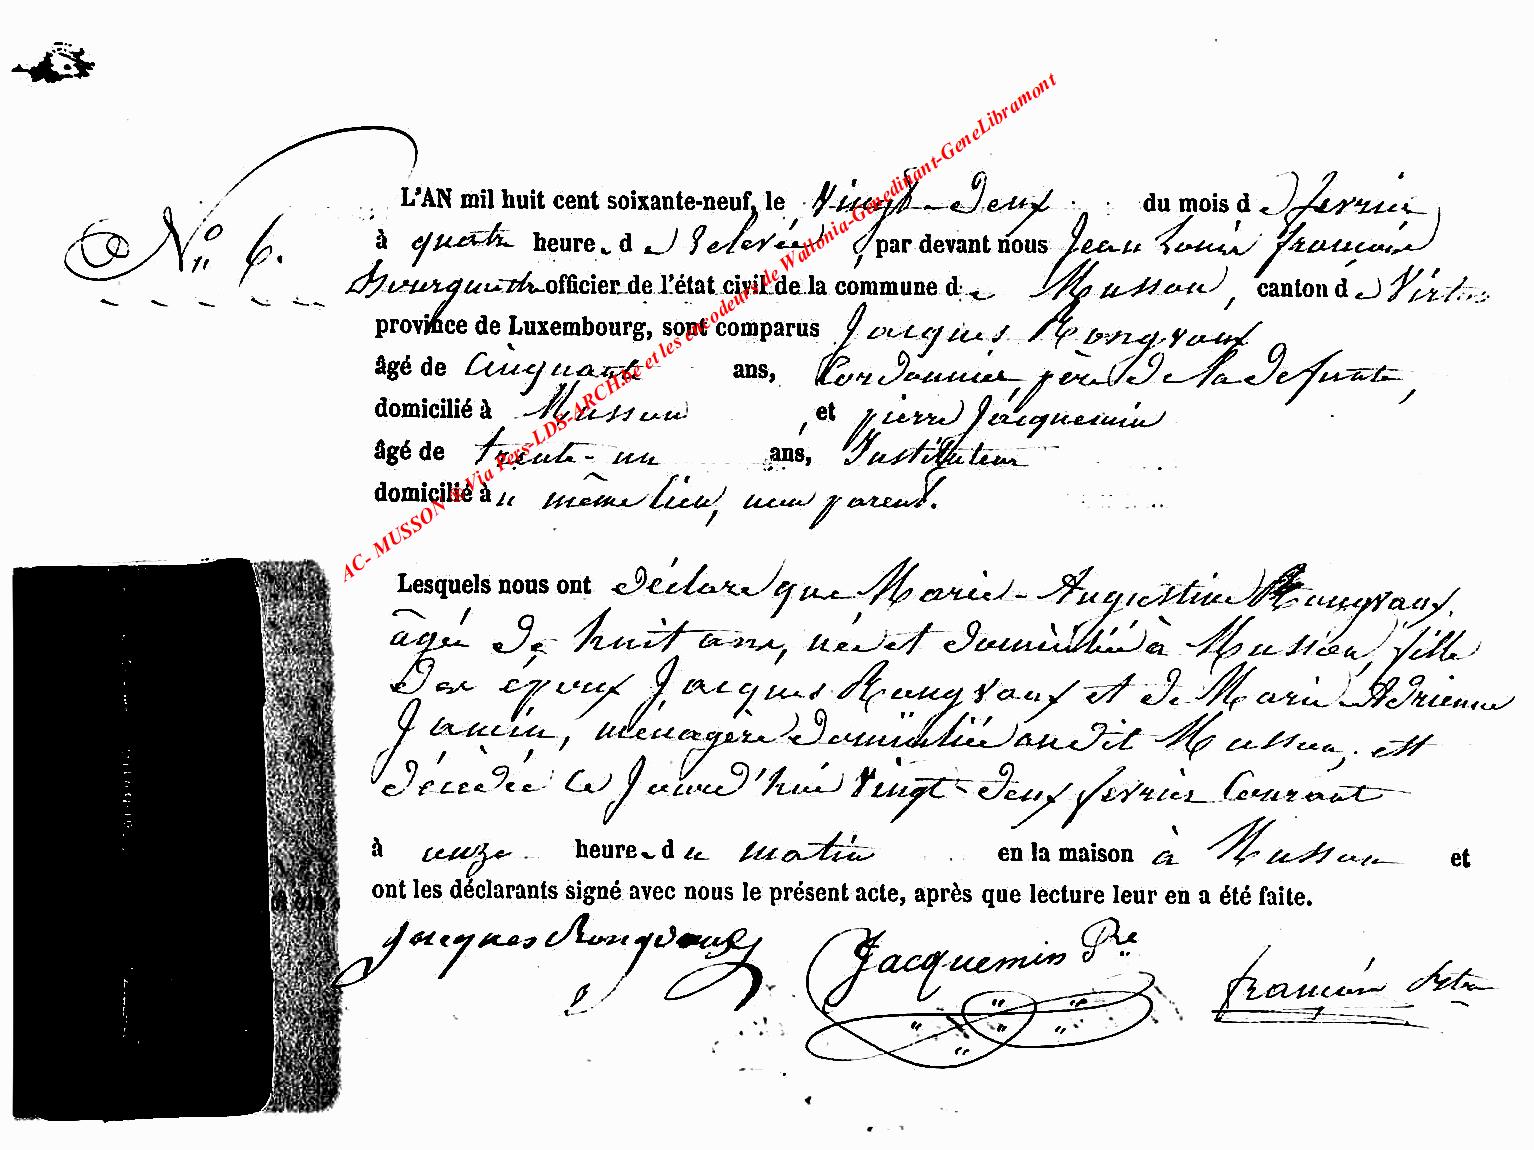 N° 6.
L'AN mil huit cent soixante-neuf, le Vingt-Deux du mois de fevrier
à quatre heure.de Relevée, par devant nous Jean Louis françois
officier de l'état civil de la commune de Musson, canton de Virton
province de Luxembourg, sont comparus Jacques Rongvaux
âgé de Cinquante ans, Cordonnier, père de la defunte,
domicilié à Musson, et pierre Jacquemin
âgé de trente-un ans, Instituteur
domicilié au même lieu, non parent.
Lesquels nous ont déclaré que Marie-Augustine Rongvaux,
âgée de huit ans, née et domiciliée à Musson, fille
des époux Jacques Rongvaux et de Marie-Adrienne
Jamin, ménagère domiciliée audit Musson, est
décédée ce Jourd'hui Vingt-Deux fevrier Courant
à onze heure.du matin en la maison à Musson et
ont les déclarants signé avec nous le présent acte, après que lecture leur en a été faite.
Jacques Rongvaux
Jacquemin Pre
françois
AC- MUSSON & Via Pers-LDS-ARCH.be et les encodeurs de Wallonia-Genedinant-GeneLibramont